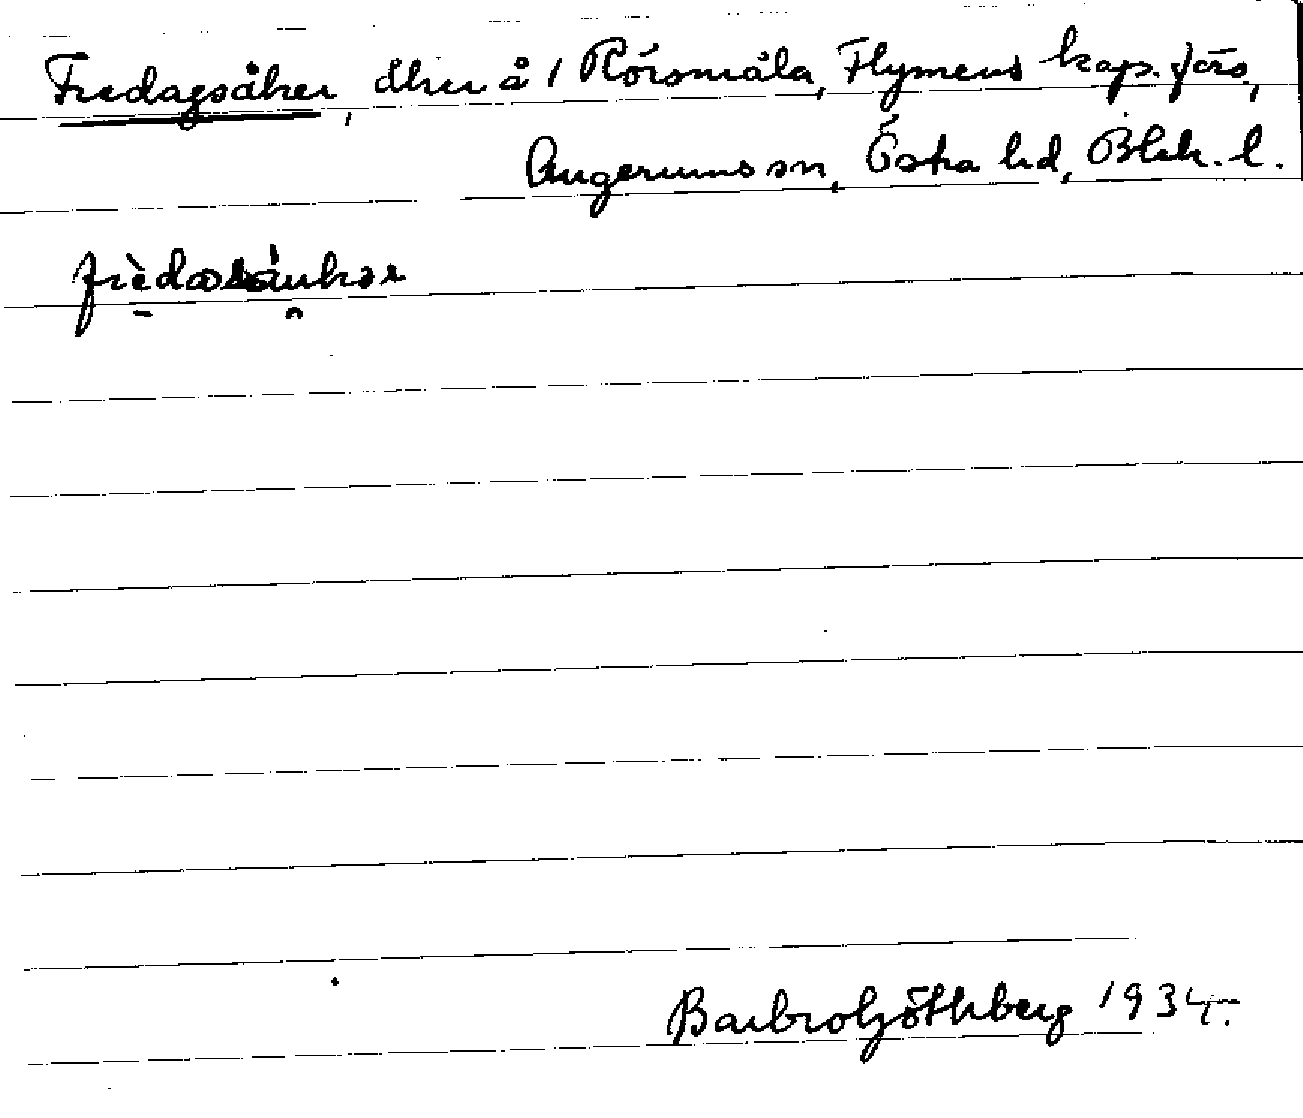 Fredagsåker, åker å 1 Rörsmåla, Flymens kap. förs,
Augerums sn, Östra hd, Blek. l.
Barbro Götlberg 1934.